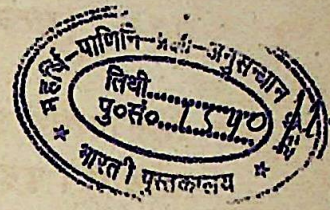 महर्षि-पाणिनि-
-अनुसन्धान
तिथी..............
पु०सं०..1540
★ भारती पुस्तकालय ★